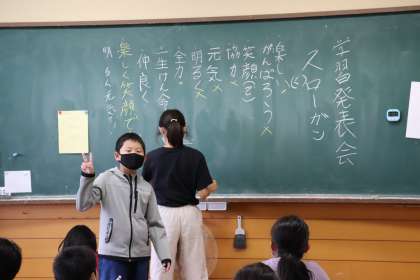 学習発表会
スローガン
楽しい
がんばろう
笑顔
協力
元気
明るく
全力
一生けん命
仲良く
楽しく笑顔で
明るく元気に!